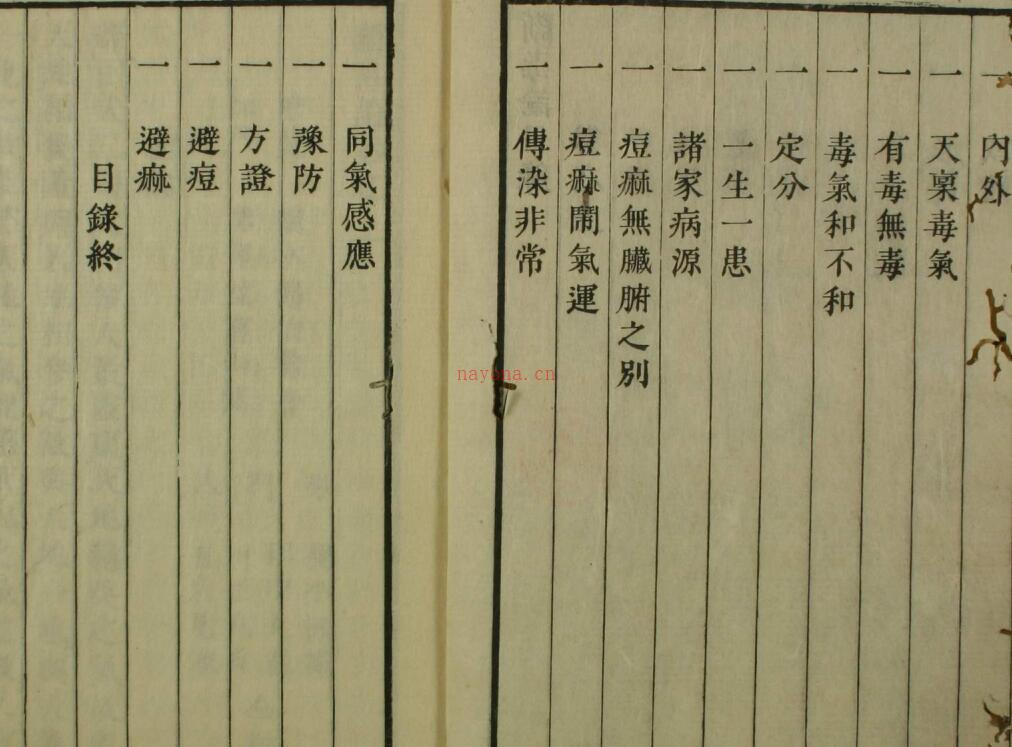 一 內外
一 天稟毒氣
一 有毒無毒
一 毒氣和不和
一 定分
一 一生一患
一 諸家病源
一 痘痲無臟腑之別
一 痘痲鬧氣運
一 傳染非常
一 同氣感應
一 豫防
一 方證
一 避痘
一 避痲
目錄終
nayona.cn